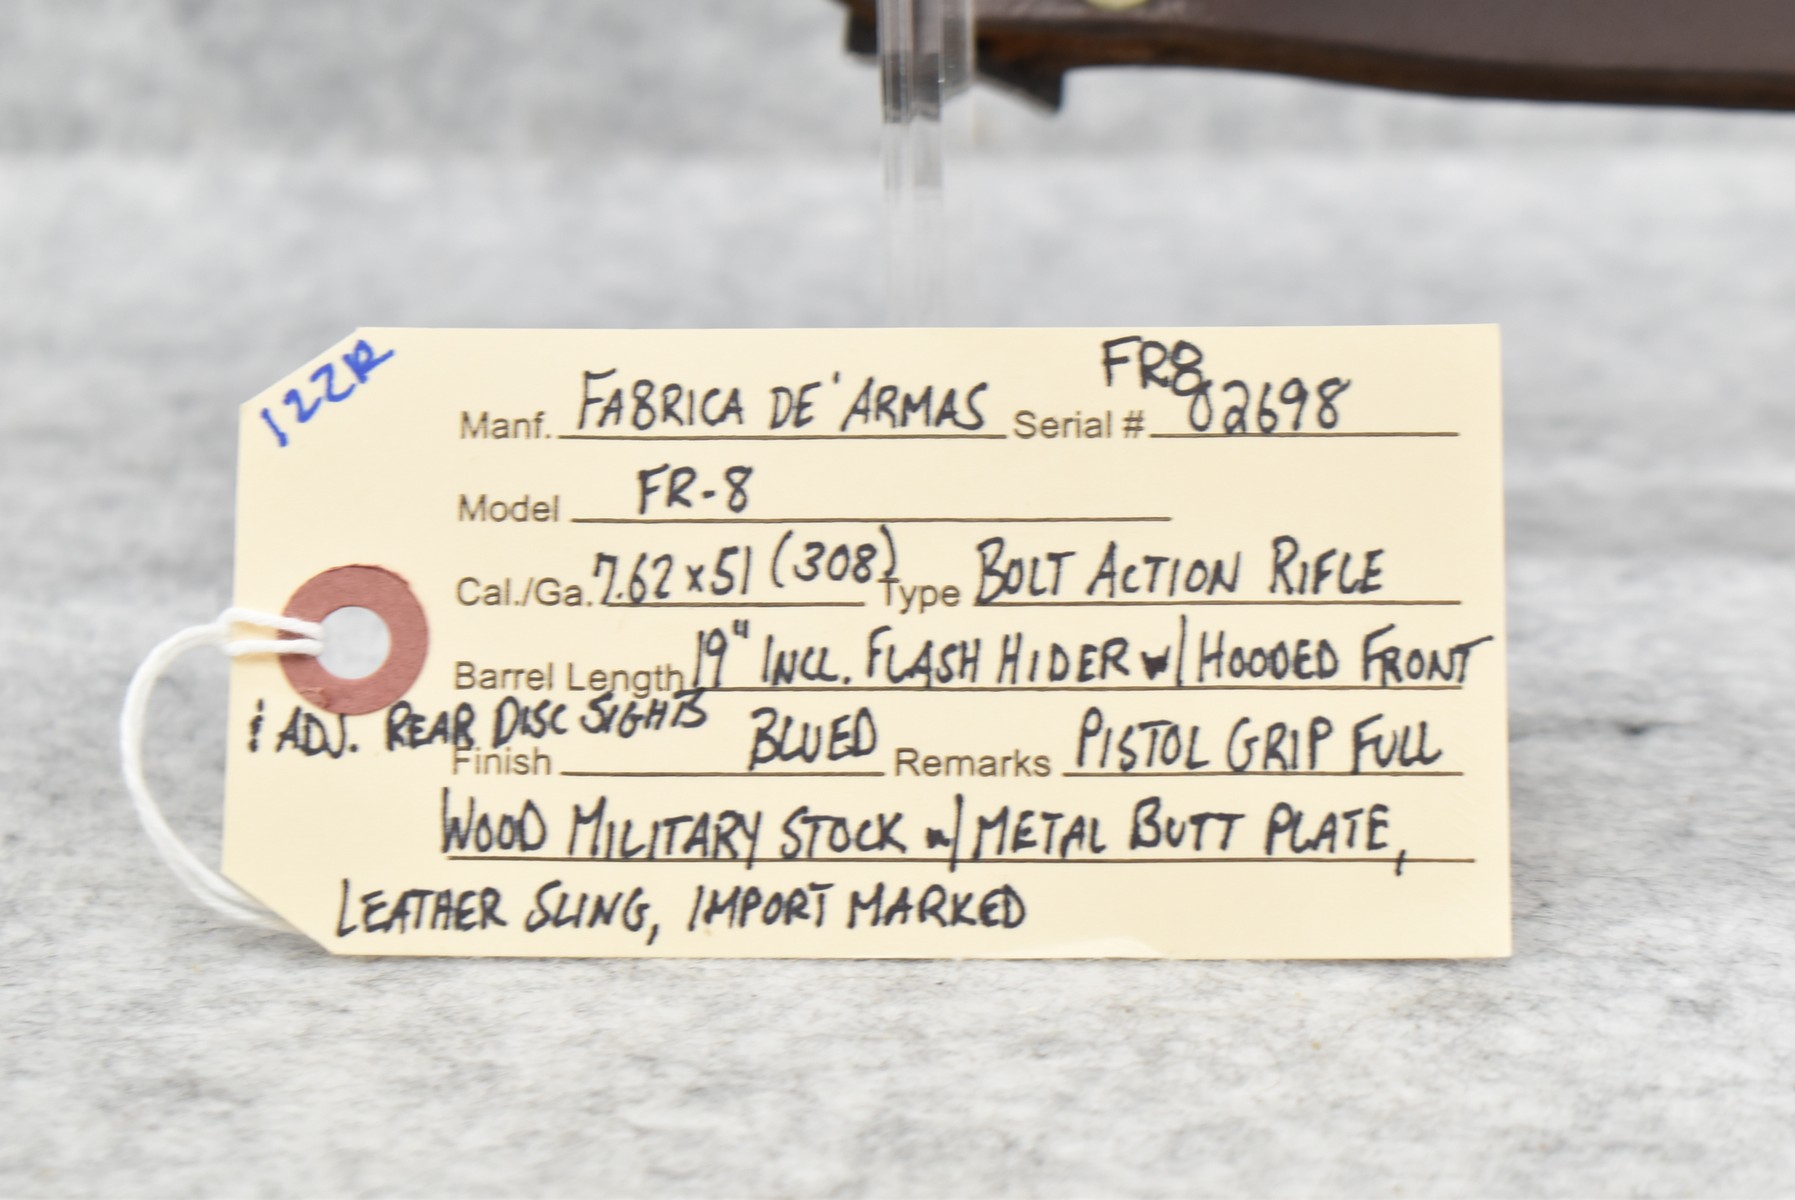 122R
Manf. FABRICA DE'ARMAS Serial # FR8 02698
Model FR-8
Cal./Ga. 7.62x51 (308) Type BOLT ACTION RIFLE
Barrel Length 19" INCL. FLASH HIDER w/ HOODED FRONT
& ADJ. REAR DISC SIGHTS
Finish BLUED Remarks PISTOL GRIP FULL
WOOD MILITARY STOCK w/ METAL BUTT PLATE,
LEATHER SLING, IMPORT MARKED